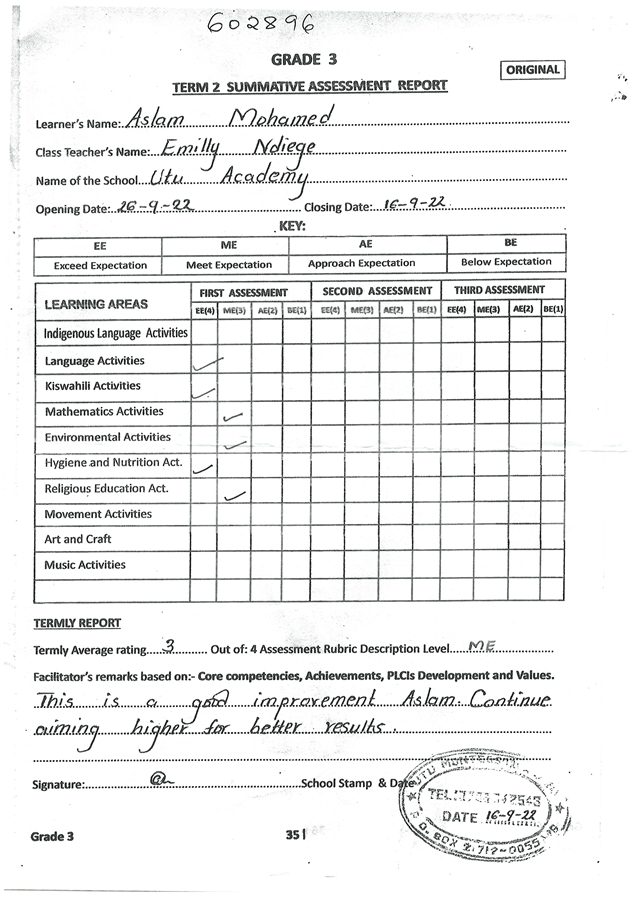 602896
GRADE 3
ORIGINAL
TERM 2 SUMMATIVE ASSESSMENT REPORT
Learner's Name: Aslam Mohamed
Class Teacher's Name: Emilly Ndiege
Name of the School Utu Academy
Opening Date: 26-9-22 Closing Date: 16-9-22
KEY:
EE ME AE BE
Exceed Expectation Meet Expectation Approach Expectation Below Expectation
LEARNING AREAS FIRST ASSESSMENT SECOND ASSESSMENT THIRD ASSESSMENT
EE(4) ME(3) AE(2) BE(1) EE(4) ME(3) AE(2) BE(1) EE(4) ME(3) AE(2) BE(1)
Indigenous Language Activities
Language Activities ✓
Kiswahili Activities ✓
Mathematics Activities ✓
Environmental Activities ✓
Hygiene and Nutrition Act. ✓
Religious Education Act. ✓
Movement Activities
Art and Craft
Music Activities
TERMLY REPORT
Termly Average rating 3 Out of: 4 Assessment Rubric Description Level ME
Facilitator's remarks based on:- Core competencies, Achievements, PLCIs Development and Values.
This is a good improvement Aslam. Continue
aiming higher for better results.
Signature: School Stamp & Date
UTU
TEL
DATE 16-9-22
P.O. BOX
Grade 3 35